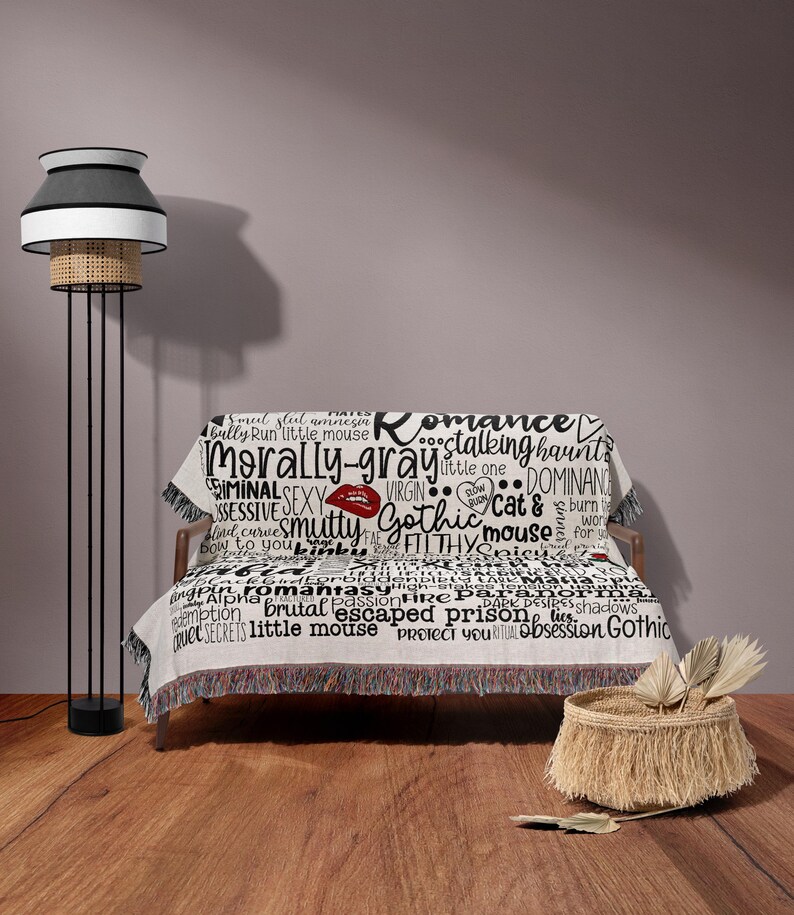 MATES
Smut slut amnesia Romance
bully Run little mouse stalking haunt
Morally-gray little one DOMINANCE
CRIMINAL SEXY VIRGIN SLOW BURN Cat & mouse
OBSESSIVE smutty Gothic burn the world for you
blind curves rage FAE FILTHY
bow to you kinky Spicy
Blackbird Forbidden DIRTY TALK Mafia
romantasy High-stakes tension paranormal
Alpha FRACTURED passion FIRE DARK DESIRES shadows
redemption brutal escaped prison lies
CRUEL SECRETS little mouse PROTECT YOU RITUAL obsession Gothic